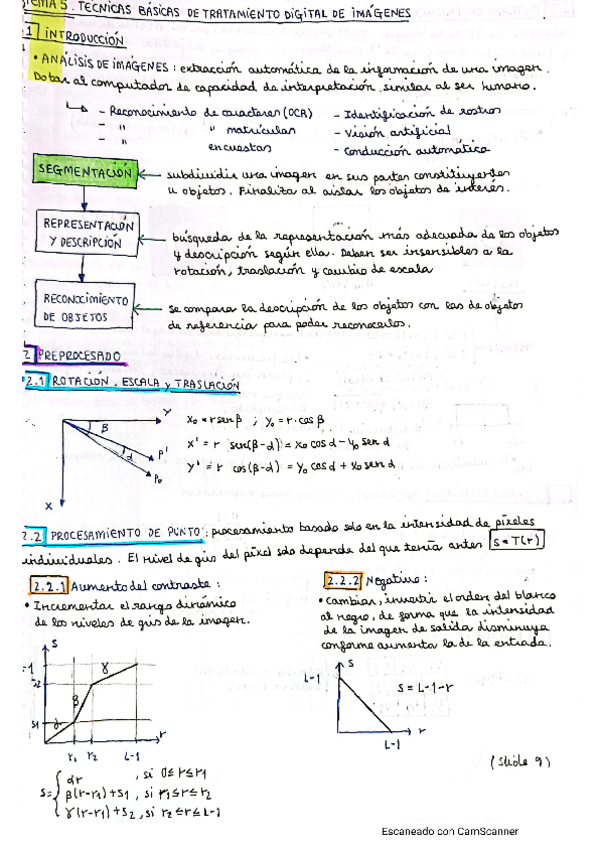 TEMA 5. TÉCNICAS BÁSICAS DE TRATAMIENTO DIGITAL DE IMÁGENES
1 INTRODUCCIÓN
• ANÁLISIS DE IMÁGENES: extracción automática de la información de una imagen.
Dotar al computador de capacidad de interpretación similar al ser humano.
↳ - Reconocimiento de caracteres (OCR) - Identificación de rostros
- " " matrículas - Visión artificial
- " encuestas - Conducción automática
SEGMENTACIÓN ← subdividir una imagen en sus partes constituyentes
u objetos. Finaliza al aislar los objetos de interés.
REPRESENTACIÓN
Y DESCRIPCIÓN ← búsqueda de la representación más adecuada de los objetos
y descripción según ella. Deben ser insensibles a la
rotación, traslación y cambio de escala
RECONOCIMIENTO
DE OBJETOS ← se compara la descripción de los objetos con las de objetos
de referencia para poder reconocerlos.
2 PREPROCESADO
2.1 ROTACIÓN, ESCALA y TRASLACIÓN
Y
β
α
P'
P₀
X
x₀ = r sen β ; y₀ = r · cos β
x' = r sen(β-α) = x₀ cos α - y₀ sen α
y' = r cos(β-α) = y₀ cos α + x₀ sen α
2.2 PROCESAMIENTO DE PUNTO: procesamiento basado solo en la intensidad de píxeles
individuales. El nivel de gris del píxel solo depende del que tenía antes s = T(r)
2.2.1 Aumento del contraste:
• Incrementar el rango dinámico
de los niveles de gris de la imagen.
S
-1
S2
S1
α
β
γ
r₁ r₂ L-1 r
S = { αr , si 0≤r≤r₁
β(r-r₁)+S₁ , si r₁≤r≤r₂
γ(r-r₂)+S₂ , si r₂≤r≤L-1
2.2.2 Negativo:
• Cambiar, invertir el orden del blanco
al negro, de forma que la intensidad
de la imagen de salida disminuya
conforme aumenta la de la entrada.
S
L-1
S = L-1-r
r
L-1
(Slide 9)
Escaneado con CamScanner